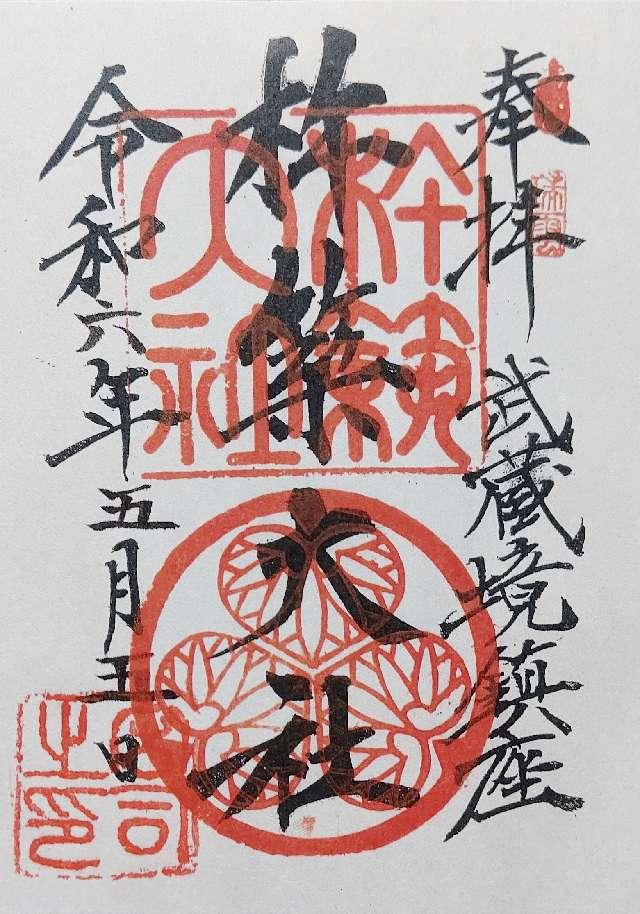 奉拝
武蔵境鎮座
杵築大社
令和六年五月五日
杵築大社
宮司之印